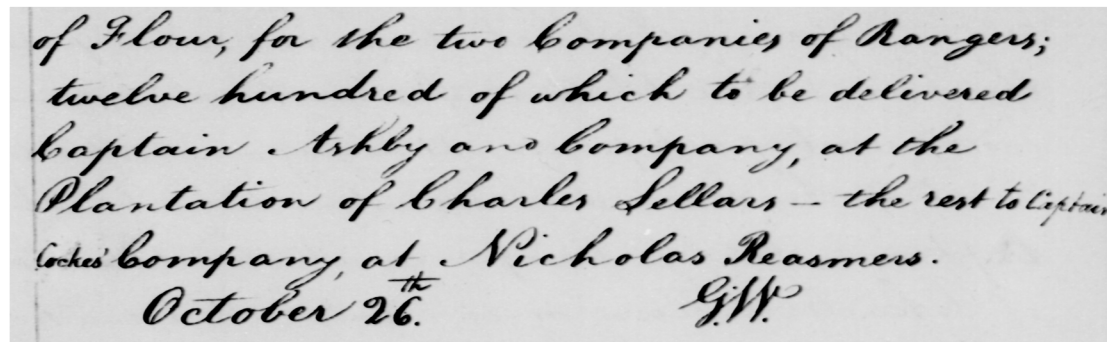 of Flour, for the two Companies of Rangers;
twelve hundred of which to be delivered
Captain Ashby and Company, at the
Plantation of Charles Sellars — the rest to Captain
Cockes' Company, at Nicholas Reasmers.
October 26.th G.W.